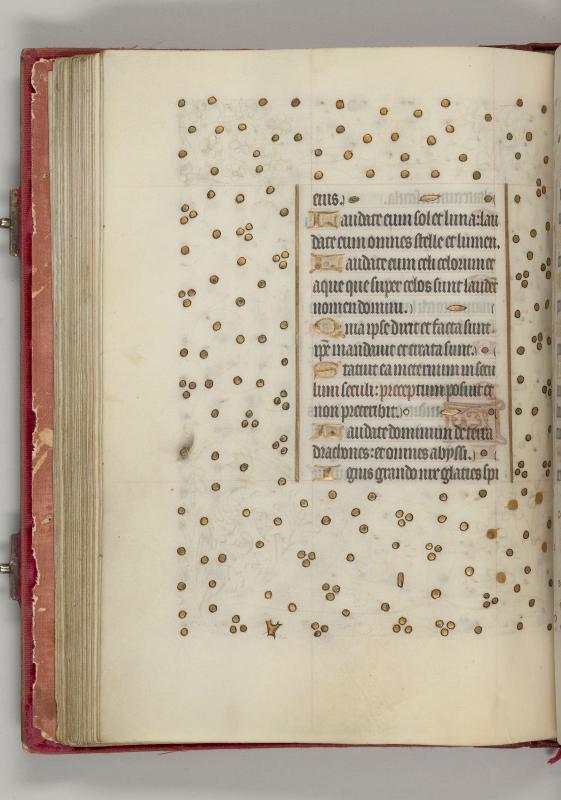 eius.
Laudate eum sol et luna: lau
date eum omnes stelle et lumen.
Laudate eum celi celorum et
aque que super celos sunt laudet
nomen domini.
Quia ipse dixit et facta sunt.
ipe mandauit et creata sunt.
Statuit ea in eternum in secu
lum seculi: preceptum posuit et
non preteribit.
Laudate dominum de terra
drachones: et omnes abyssi.
Ignis grando nix glacies spi